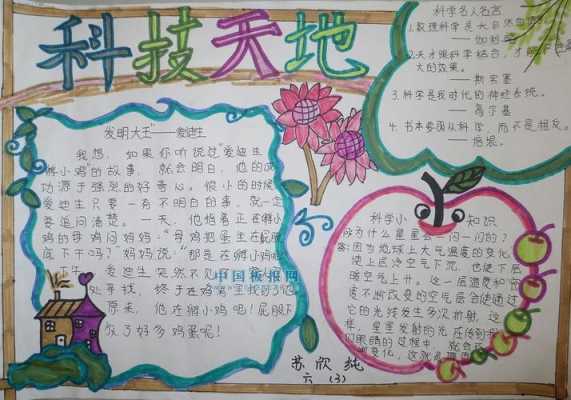 科技天地
科学名人名言
1.数理科学是大自然
——伽利略
2.天才跟科学结合，才能
大的效果。
——斯宾塞
3.科学是我时代的神经系统。
——高尔基
4.书本要跟从科学，而不是相反。
——培根。
发明大王"——爱迪生
我想，如果你听说过"爱迪生
孵小鸡"的故事，就会明白，他的成
功源于强烈的好奇心。很小的时候
爱迪生只要一有不明白的事，就一定
要追问清楚。一天，他指着正在孵小
鸡的母鸡问妈妈："母鸡把蛋坐在屁股
底下干吗？"妈妈说："那是在孵小鸡呢
午，爱迪生突然不见了
处寻找，终于在鸡窝里找到了他
原来，他在孵小鸡呢！屁股下
放了好多鸡蛋呢！
科学小知识
问为什么星星会一闪一闪的？
答:因为地球上大气温度的变化
使上层冷空气下沉，也使下层
暖空气上升。这一层温度和密
度不断改变的空气层会使通过
它的光线发生多次折射，这
样，星星发射的光在传到我
们眼睛的过程中，就会
变化，这就
苏欣纯
六（3）
中国板报网